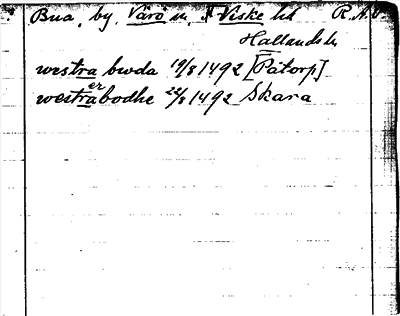 Bua, by, Värö sn, Viske hd R.A.O.
Hallands l.
westra bwda 19/8 1492 [Påtorp]
er
westrabodhe 22/8 1492 Skara